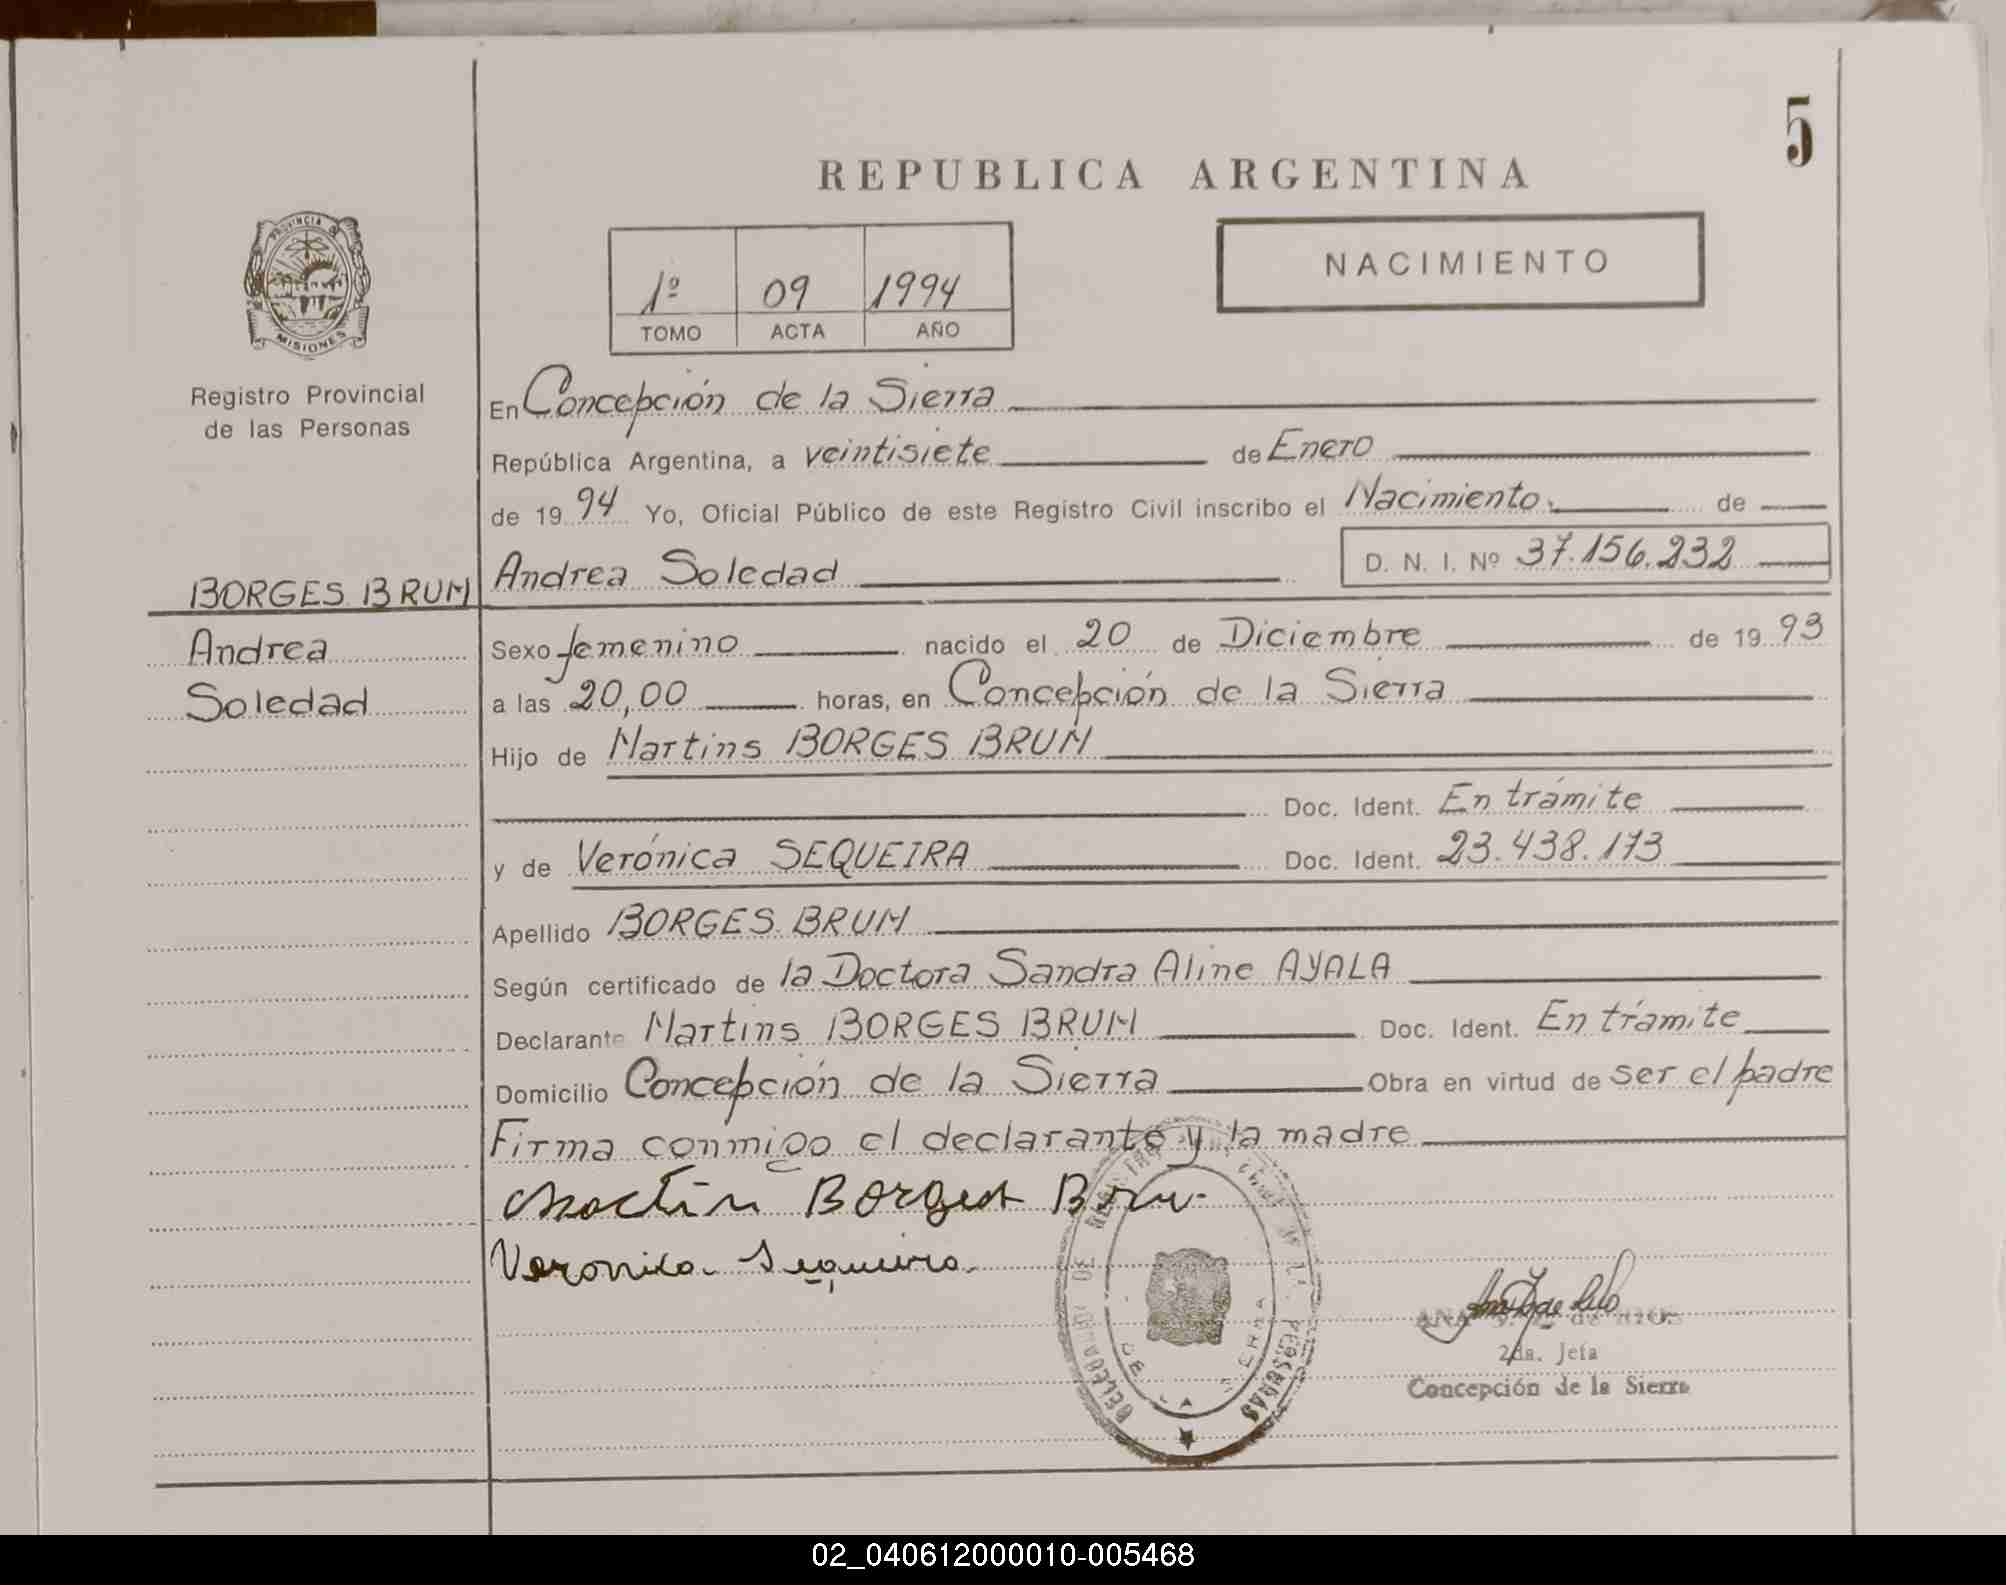 5
REPUBLICA ARGENTINA
PROVINCIA D
MISIONES
Registro Provincial
de las Personas
NACIMIENTO
1º 09 1994
TOMO ACTA AÑO
En Concepción de la Sierra
República Argentina, a veintisiete de Enero
de 1994 Yo, Oficial Público de este Registro Civil inscribo el Nacimiento de
BORGES BRUM Andrea Soledad D. N. I. Nº 37.156.232
Andrea Sexo femenino nacido el 20 de Diciembre de 1993
Soledad a las 20,00 horas, en Concepción de la Sierra
Hijo de Martins BORGES BRUM
Doc. Ident. En trámite
y de Verónica SEQUEIRA Doc. Ident. 23.438.173
Apellido BORGES BRUM
Según certificado de la Doctora Sandra Aline AYALA
Declarante Martins BORGES BRUM Doc. Ident. En trámite
Domicilio Concepción de la Sierra Obra en virtud de ser el padre
Firma conmigo el declarante y la madre
Borges Bru
Veronica Sequeira
ANA de RIOS
2da. Jefa
Concepción de la Sierra
02_040612000010-005468